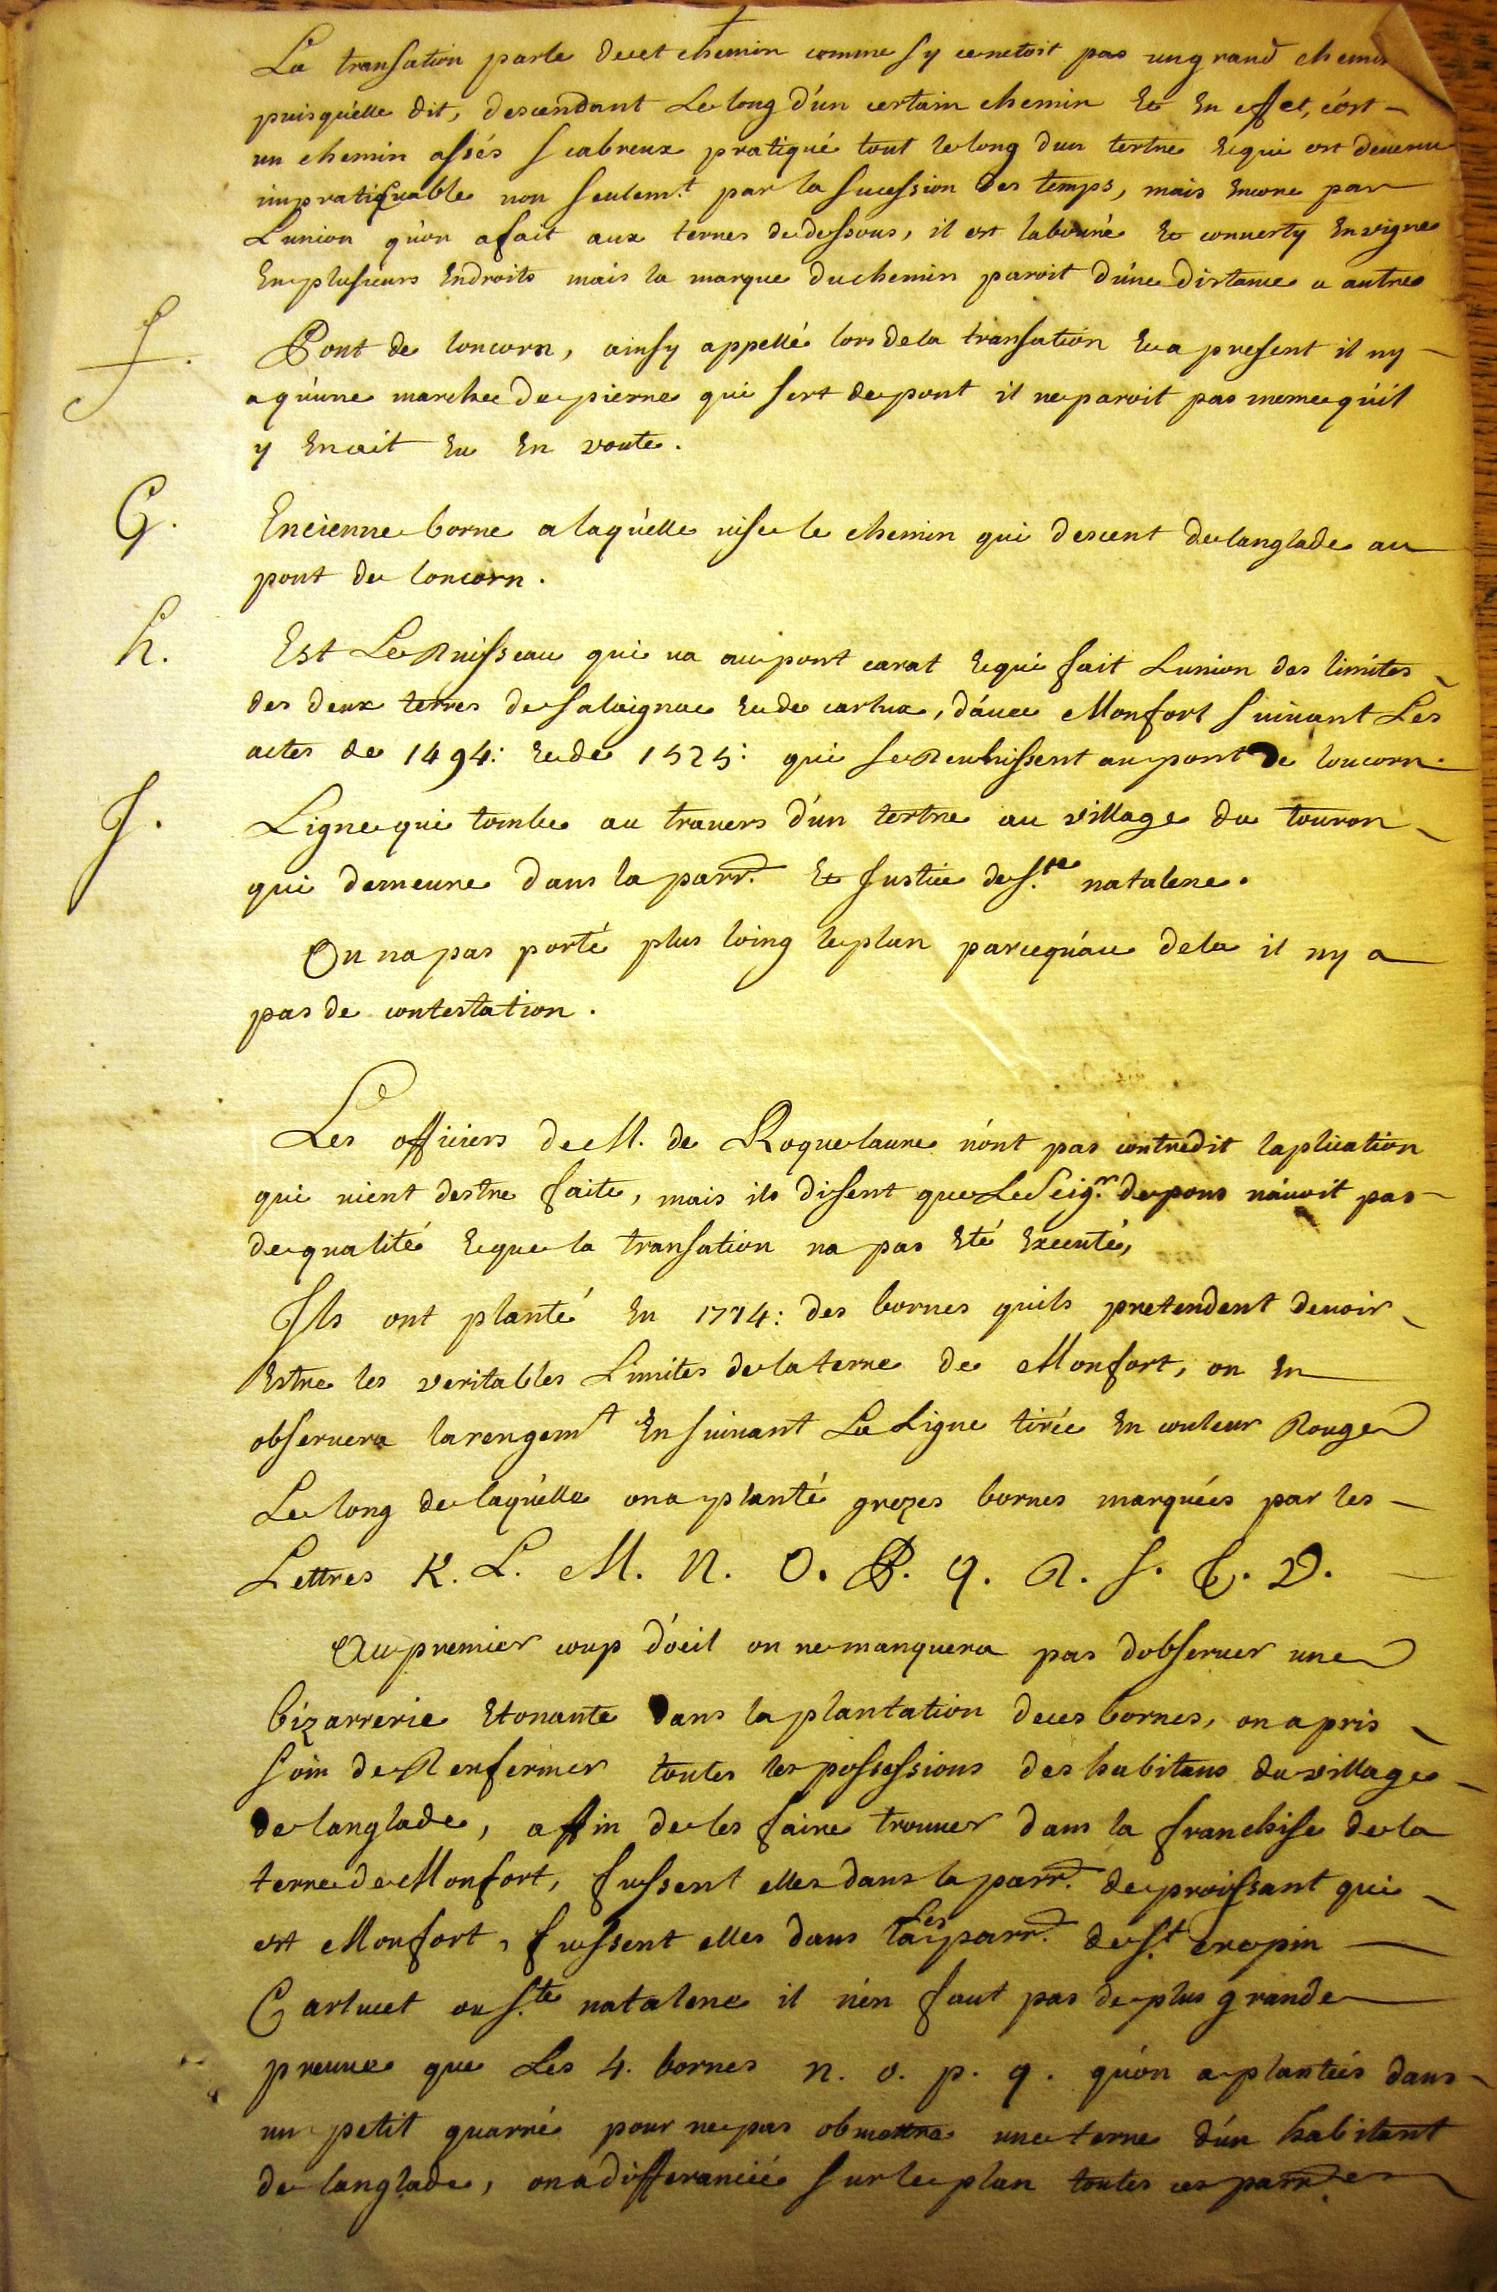 La transation parle de cet chemin comme sy ce netoit pas un grand chemin
puisquélle dit, descendant Le long d'un certain chemin Et En effet, c'est
un chemin assés scabreux pratiqué tout le long d'un tertre Et qui est devenu
impratiquable non seulem.t par la sucession des temps, mais Encore par
L'union qu'on a fait aux terres de dessous, il est labouré Et converty En vigne
En plusieurs Endroits mais la marque du chemin paroit d'une distance a autre
f. Pont de loucorn, ainsy appellé lors de la transation Et a present il ny
a qu'une marche de pierre qui sert de pont il ne paroit pas meme qu'il
y En ait Eu En voute.
G. Encienne borne a laqu'elle vise le chemin qui descent de langlade au
pont de loucorn.
h. Est Le Ruisseau qui va au pont carat Et qui fait L'union des limites
des deux terres de Salaignac Et de carlux, d'avec Monfort suivant Les
actes de 1494: Et de 1525: qui se Reuhissent au pont de loucorn.
J. Ligne qui tombe au travers d'un tertre au village du touron
qui demeure dans la parr.e Et Justice de s.te natalene.
On na pas porté plus loing le plan parcequ'au dela il ny a
pas de contestation.
Les officiers de M. de Roquelaure n'ont pas contredit laplication
qui vient destre faite, mais ils disent que Le Seig.r de pons n'avoit pas
de qualité Et que la transation na pas Eté Executé,
Ils ont planté En 1774: des bornes quils pretendent devoir
Estre les veritables Limites de la terre de Monfort, on En
observera larengem.t En suivant La Ligne tirée En couleur Rouge
Le long de laqu'elle on a planté grozes bornes marquées par les
Lettres K. L. M. N. O. P. q. R. S. T. V.
Au premier coup d'oeil on ne manquera pas dobserver une
bizarrerie Etonante dans la plantation de ces bornes, on a pris
soin de Renfermer toutes les possessions des habitans du village
de langlade, affin de les faire trouver dans la franchise de la
terre de Monfort, fussent elles dans la parr.e de proissant qui
est Monfort, fussent elles dans Les parr.e de s.t crepin
Carlucet ou s.te natalene il n'en faut pas de plus grande
preuve que Les 4. bornes n. o. p. q. qu'on a plantées dans
un petit quarré pour ne pas obmettre une terre d'un habitant
de langlade, on a differancié sur le plan toutes ces parr.es